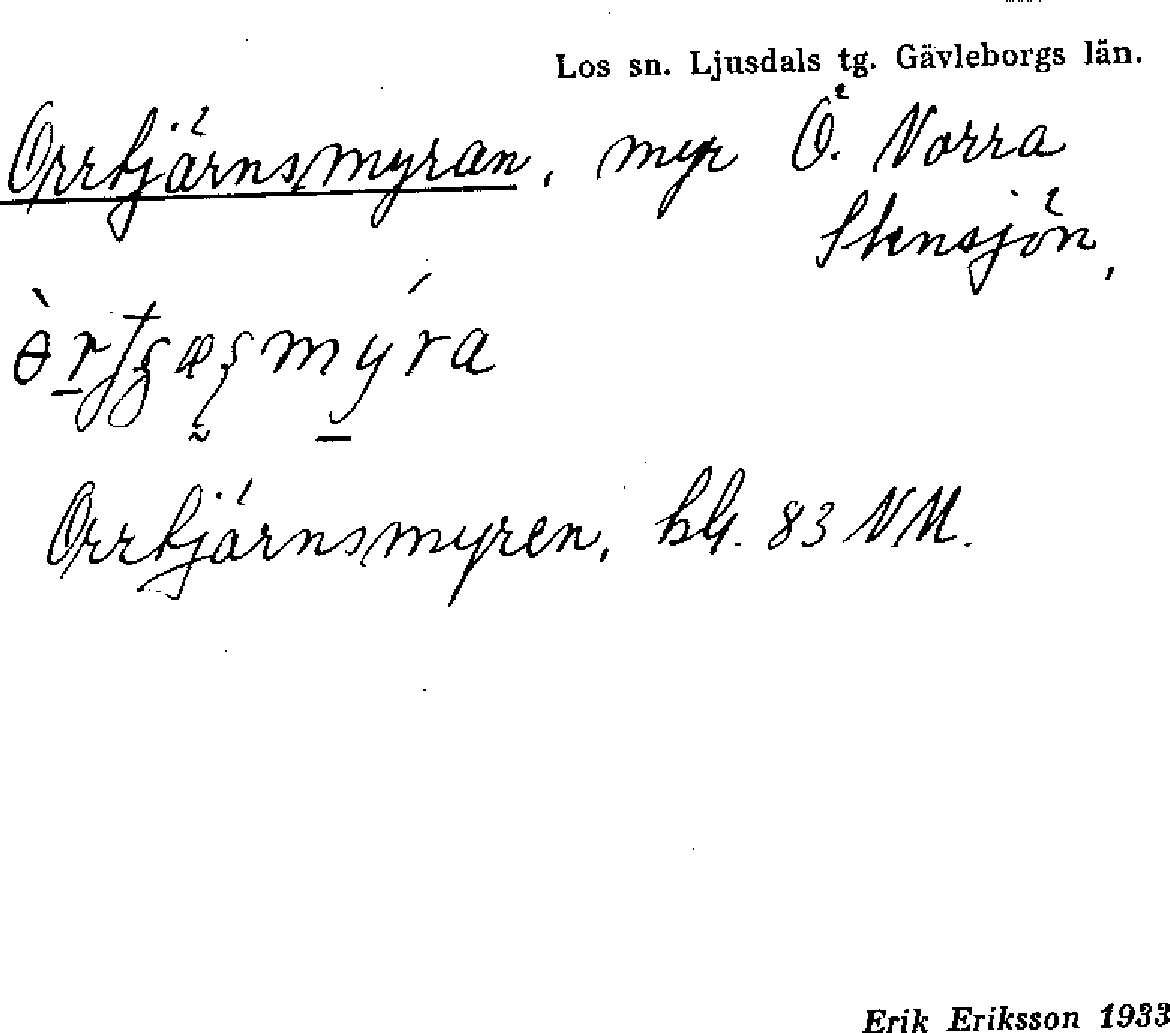 Los sn. Ljusdals tg. Gävleborgs län.
Orrtjärnsmyran, myr Ö. Norra
Stensjön,
Orrtjärnsmyren, bl. 83 NM.
Erik Eriksson 1933